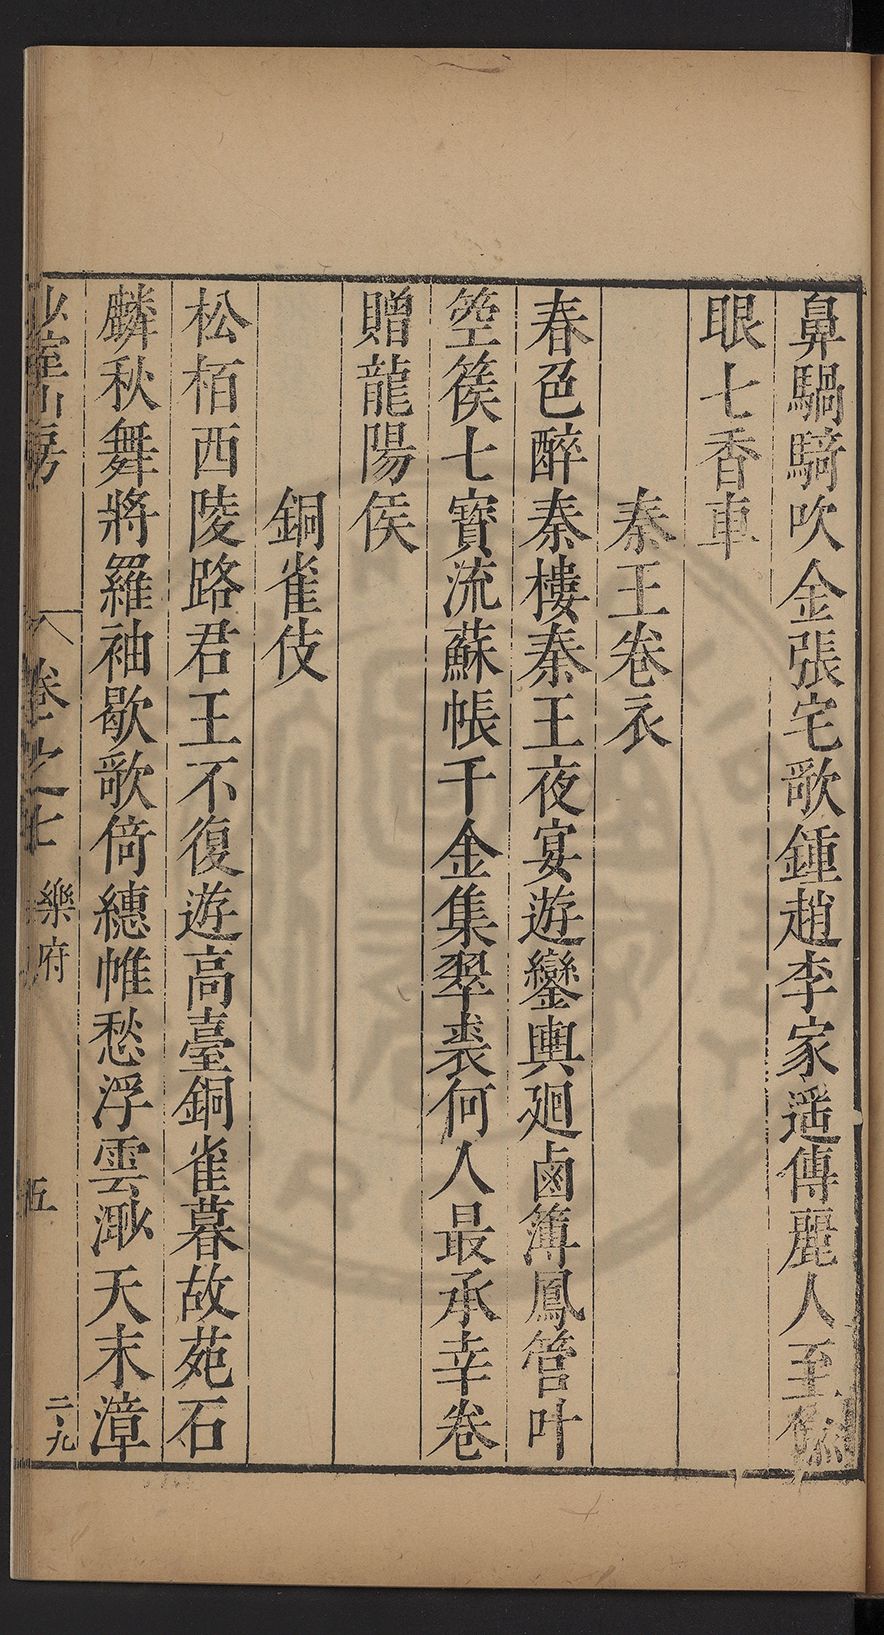 鼻騧騎吹金張宅歌鍾趙李家遥傳麗人至
眼七香車
秦王卷衣
春色醉秦樓秦王夜宴遊鑾輿廻鹵簿鳳管叶
箜篌七寶流蘇帳千金集翠裘何人最承幸卷
贈龍陽侯
銅雀伎
松栢西陵路君王不復遊高臺銅雀暮故苑石
麟秋舞將羅袖歇歌倚繐帷愁浮雲渺天末漳
少室山房
卷之七
樂府
五
二九